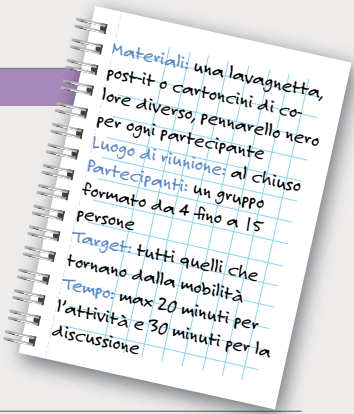 Materiali: una lavagnetta,
post-it o cartoncini di co-
lore diverso, pennarello nero
per ogni partecipante
Luogo di riunione: al chiuso
Partecipanti: un gruppo
formato da 4 fino a 15
persone
Target: tutti quelli che
tornano dalla mobilità
Tempo: max 20 minuti per
l'attività e 30 minuti per la
discussione